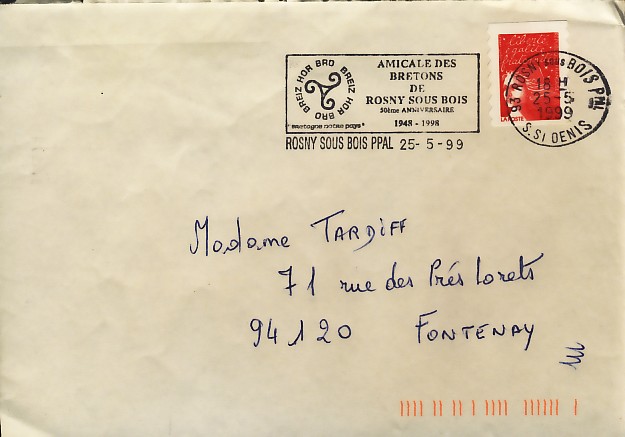 BREIZ HOR BRO BREIZ HOR BRO
"Bretagne notre pays"
AMICALE DES
BRETONS
DE
ROSNY SOUS BOIS
50ème ANNIVERSAIRE
1948 - 1998
ROSNY SOUS BOIS PPAL 25-5-99
liberté
égalité
LA POSTE
93 ROSNY SOUS BOIS PPAL
18 H
25-5
1999
S. ST DENIS
Madame TARDIFF
71 rue des Prés Lorets
94120 FONTENAY